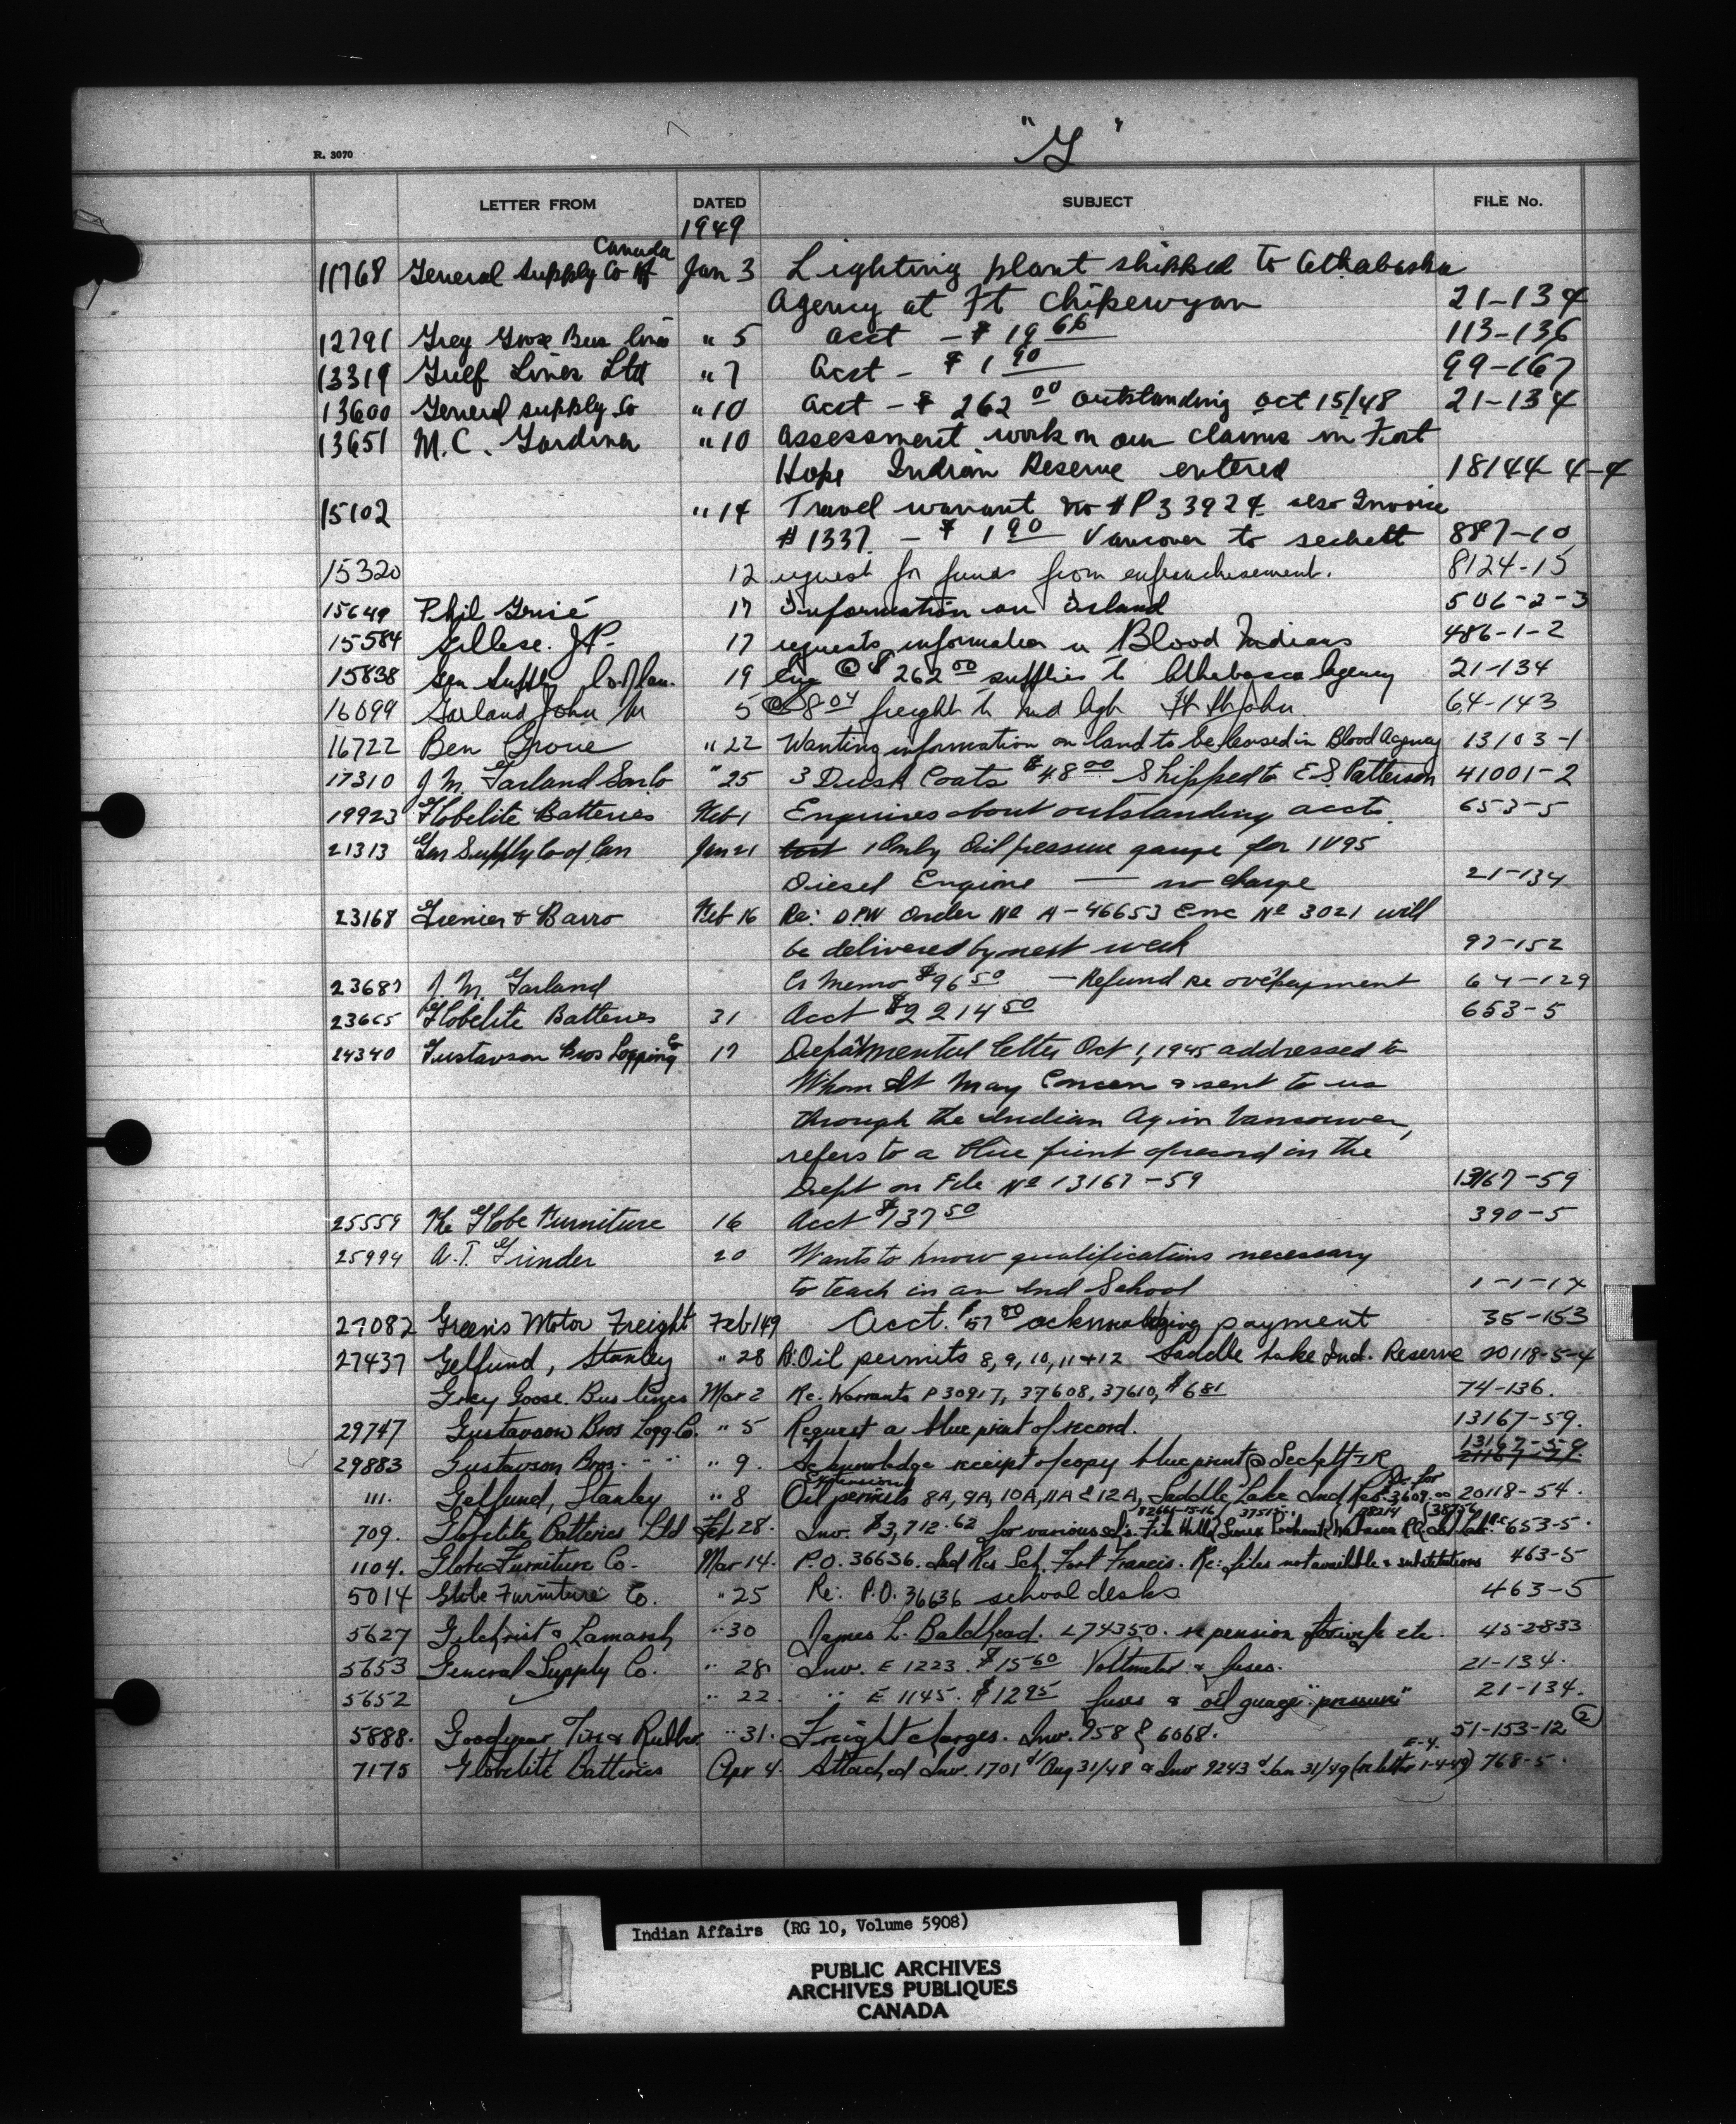 "G"
R. 3070
LETTER FROM DATED SUBJECT FILE No.
1949
11768 General Supply Co of Canada Jan 3 Lighting plant shipped to Athabaska
Agency at Ft Chipewyan 21-134
12791 Grey Goose Bus Lines " 5 acct - $ 19 66 113-136
13319 Gulf Lines Ltd " 7 Acct - $ 1 90 99-167
13600 General supply Co " 10 Acct - $ 262 00 outstanding oct 15/48 21-134
13651 M.C. Gardiner " 10 assessment work on our claims in Fort
Hope Indian Reserve entered 18144-4-4
15102 " 14 Travel warrant no # P 33924 also Invoice
# 1337 - $ 1 90 Vancouver to sechelt 887-10
15320 12 request for funds from enfranchisement. 8124-15
15649 Phil 17 Information on Island 506-2-3
15584 J.P. 17 requests information re Blood Indians 486-1-2
15838 Gen Supply Co. of Can. 19 @ $ 262 00 supplies to Athabasca Agency 21-134
16099 Garland John M 5 8 04 freight to Ind Agt Ft St John 64-143
16722 Ben Groue " 22 Wanting information on land to be leased in Blood Agency 13103-1
17310 J. M. Garland Son Co " 25 3 Dusk Coats $48 00 Shipped to E S Patterson 41001-2
19923 Globelite Batteries Feb 1 Enquires about outstanding accts. 653-5
21313 Gen Supply Co of Can Jan 21 1 Only Oil pressure gauge for 1V95
Diesel Engine — no charge 21-134
23168 Grenier & Barro Feb 16 Re: DPW Order No A-46653 Enc No 3021 will
be delivered by next week 97-152
23687 J. M. Garland Cr Memo $96 50 — Refund re overpayment 64-129
23665 Globelite Batteries 31 Acct $2214 50 653-5
24340 Gustavson Bros Logging Co 17 Departmental letter Oct 1, 1945 addressed to
Whom It May Concern & sent to us
through the Indian Ag in Vancouver,
refers to a blue print of record in the
Dept on File No 13167-59 13167-59
25559 The Globe Furniture 16 Acct $737 50 390-5
25994 A.T. Grinder 20 Wants to know qualifications necessary
to teach in an Ind School 1-1-14
27082 Green's Motor Freight Feb 1/49 Acct. $57 00 acknowledging payment 35-153
27437 Gelfund, Stanley " 28 R: Oil permits 8, 9, 10, 11 + 12 Saddle Lake Ind. Reserve 20118-5-4
Grey Goose Bus lines Mar 2 Re. Warrants P 30917, 37608, 37610, $6 81 74-136.
29747 Gustavson Bros Logg. Co. " 5 Request a blue print of record. 13167-59.
29883 Gustavson Bros. - " " 9. Acknowledge receipt of copy blueprint @ Sechelt I R 13167-59
111. Gelfund, Stanley " 8 Extension Oil permits 8A, 9A, 10A, 11A & 12A, Saddle Lake Ind Res. 3609.00 20118-54.
709. Globelite Batteries Ltd Feb 28. Inv. $3,712.62 for various File Hills, Sioux Lookout, Wabasca 653-5.
1104. Globe Furniture Co. Mar 14. P.O. 36636. Ind Res Sch. Fort Francis. Re: files not available & substitutions 463-5
5014 Globe Furniture Co. " 25 Re: P.O. 36636 school desks 463-5
5627 Gilchrist & Lamarsh " 30 James L. Baldhead. L 74350. re pension for wife etc. 45-2833
5653 General Supply Co. " 28 Inv. E 1223. $15 60 Voltmeter & fuses. 21-134.
5652 " 22. " E 1145. $12 95 fuses & oil guage "pressure" 21-134.
5888. Goodyear Tire & Rubber " 31. Freight charges. Inv. 958 & 6068. 51-153-12 (2)
E-4.
7175 Globelite Batteries Apr 4. Attached Inv. 1701 d/ Aug 31/48 & Inv 9243 d/ Jan 31/49 (re letter 1-4-49) 768-5.
Indian Affairs (RG 10, Volume 5908)
PUBLIC ARCHIVES
ARCHIVES PUBLIQUES
CANADA